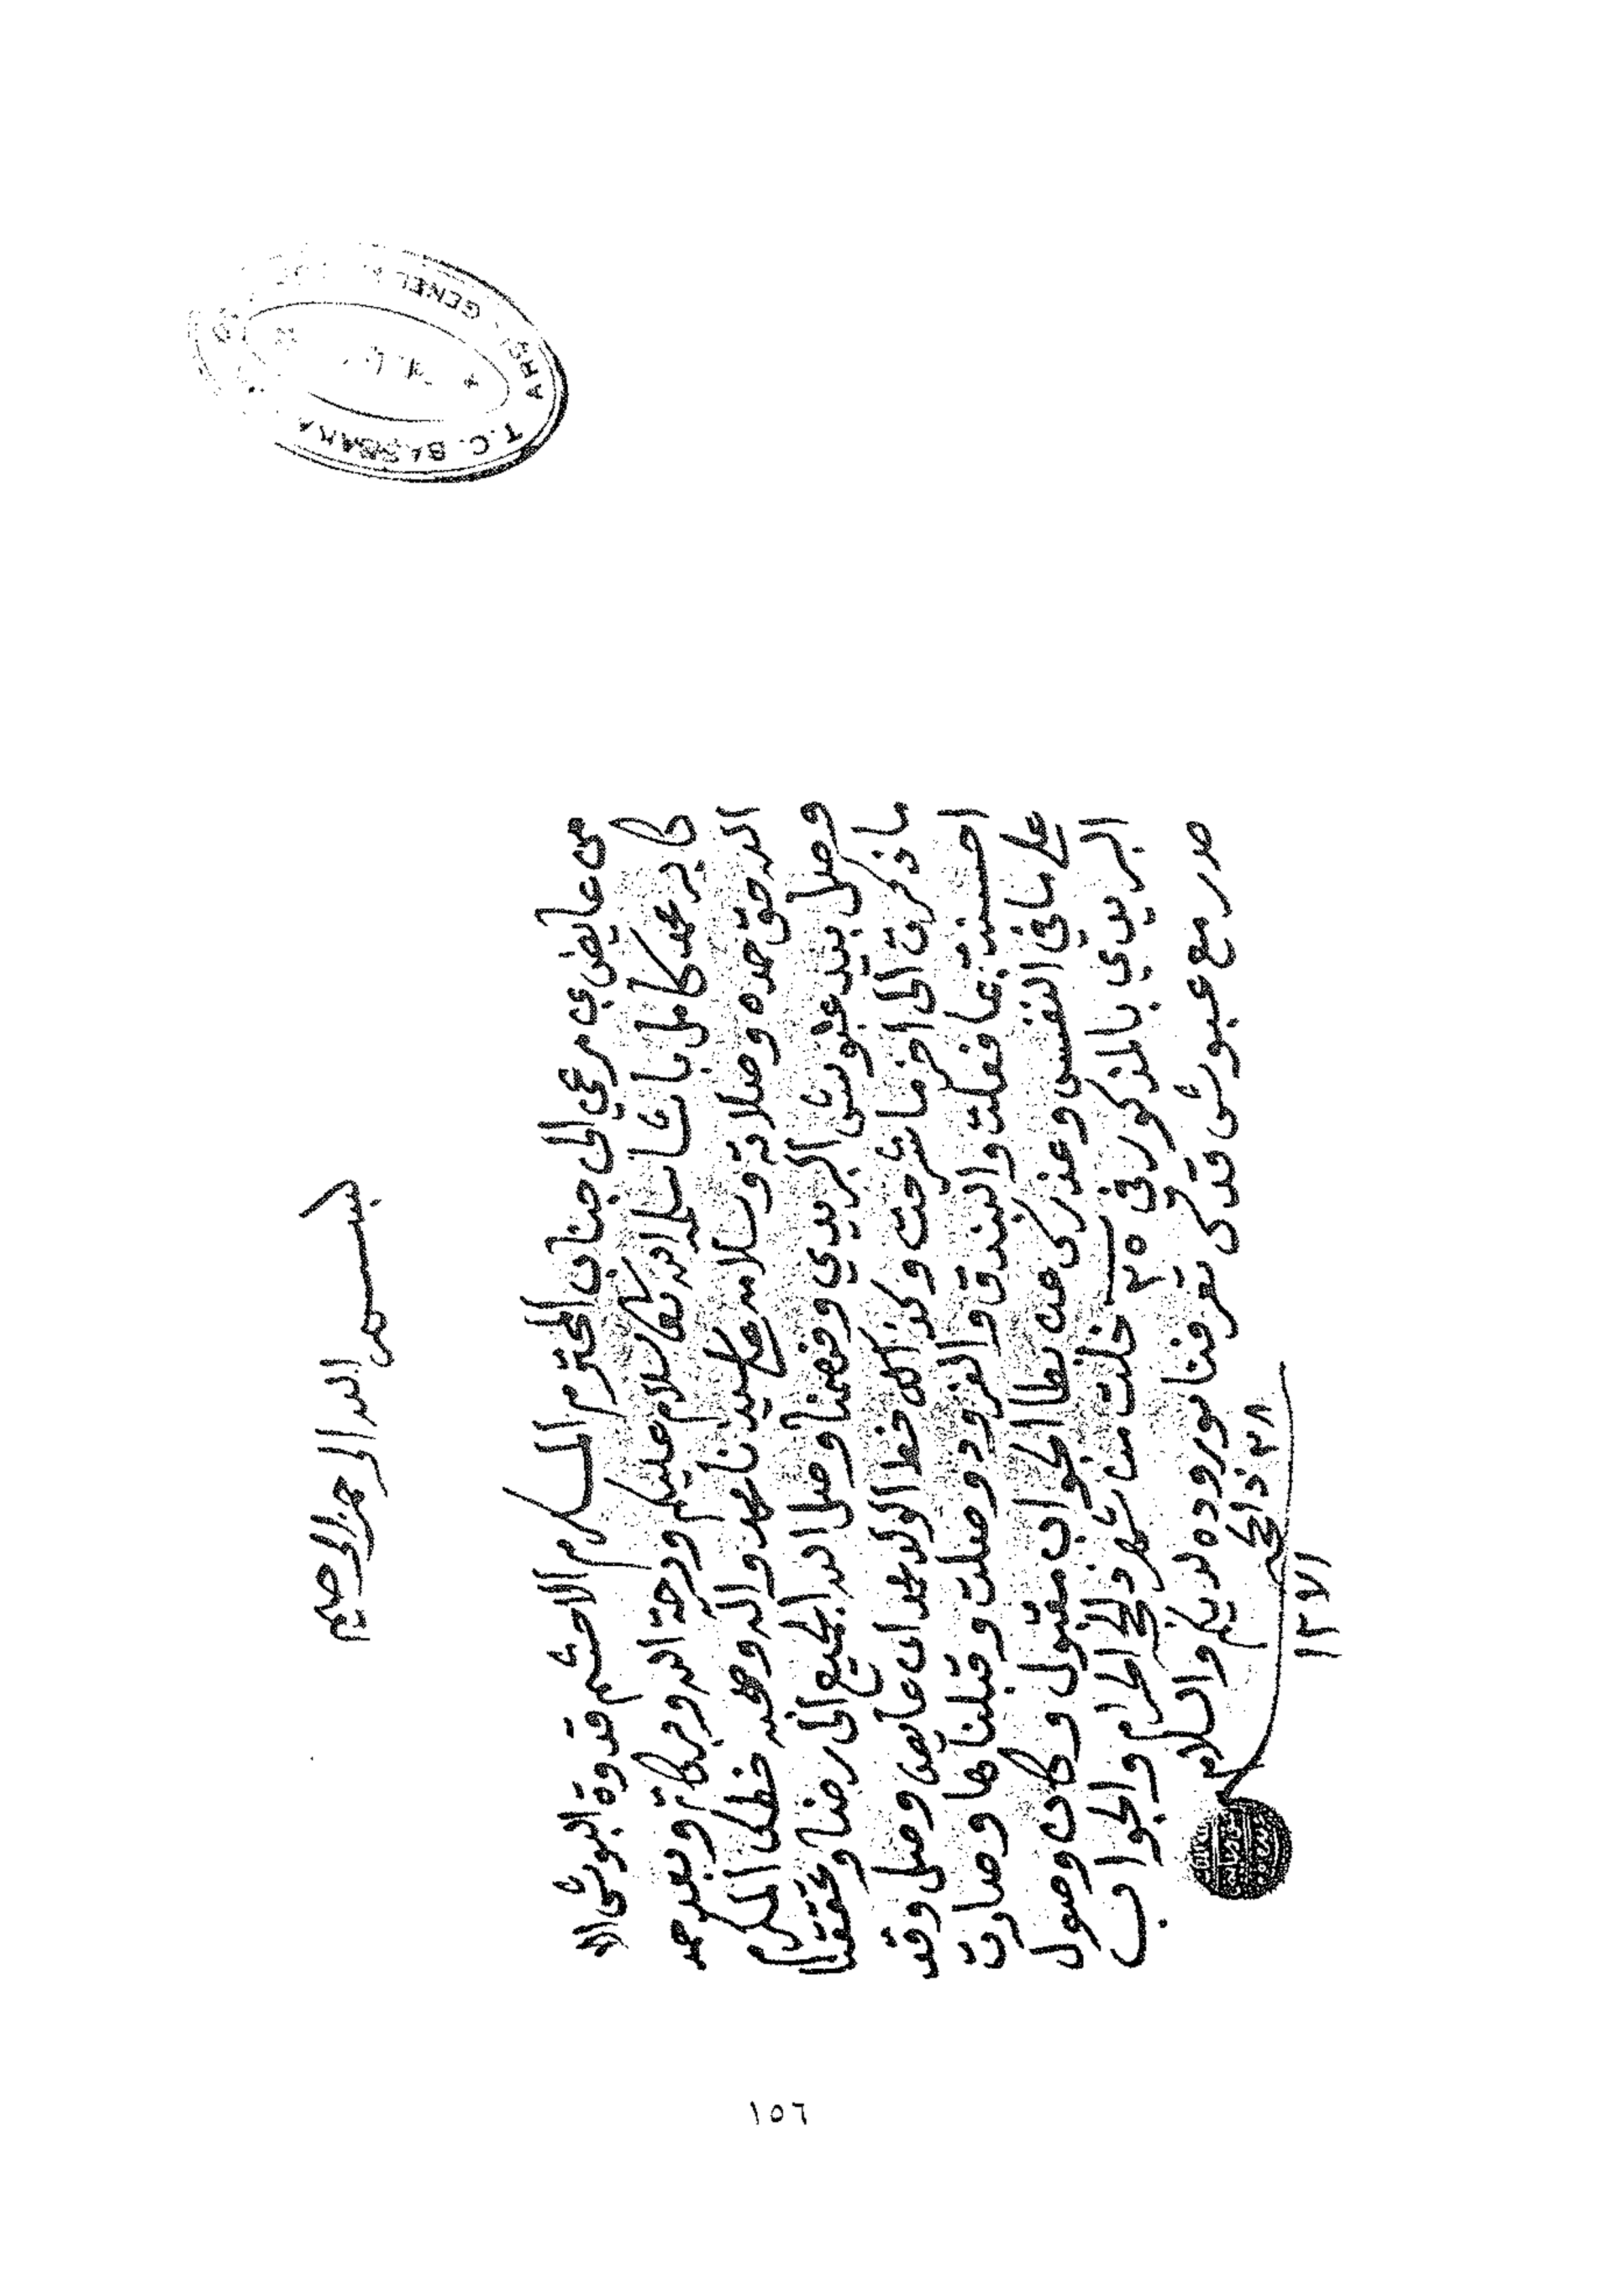 بسم الله الرحمن الرحيم
من عايض بن مرعي إلى جناب المحترم المكرم الاحشم قدوة البوش الا
كابر محمد كامل باشا سلمه الله تعالى سلام عليكم ورحمة الله وبركاته وبعد حمد
الله حق حمده وصلاته وسلامه على سيدنا محمد وآله وصحبه خطك المكرم
وصل بيد عبوش البريدي وفهمناه وصل الله الجميع إلى رضاه وتحققنا
ما ذكرت إلى اخر ما شرحت وكذلك خط الولد محمد ابن عايض وصل وقد
احسنت بما فعلت والبندق والفرود وصلت وقبلناها وصارت
على ما في النفس وعذرك عن بطا الجواب مقبول وكان وصول
البريدي المذكور في ٢٥ خلت من شهر ذي الحجة الحرام والجواب
صدر مع عبوش قدكن تعرفنا بوروده لديكم والسلام
٢٨ ذي الحجة
١٢٧١
١٥٦
T.C. BAŞBAKANLIK
GENEL